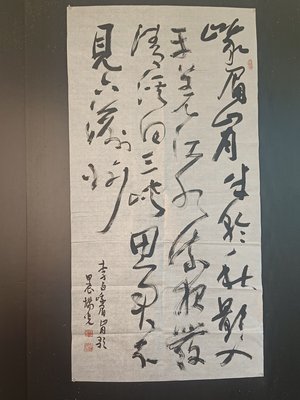 峨眉山月半輪秋影入
平羌江水流夜發
清溪向三峽思君不
見下渝州
李白峨眉山月歌
甲辰